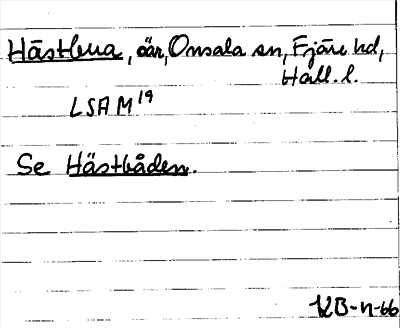 Hästbua, öar, Onsala sn, Fjäre hd,
Hall. l.
LSA M19
Se Hästbåden.
KB-n-66